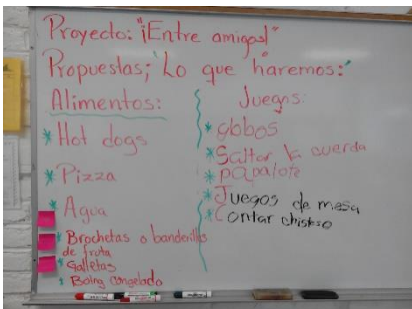 Proyecto: "¡Entre amigos!"
Propuestas; "Lo que haremos:"
Alimentos:
* Hot dogs
* Pizza
* Agua
* Brochetas o banderillas
de fruta
* Galletas
* Boing congelado
Juegos:
* globos
* Saltar la cuerda
* papalote
* Juegos de mesa
* Contar chistso